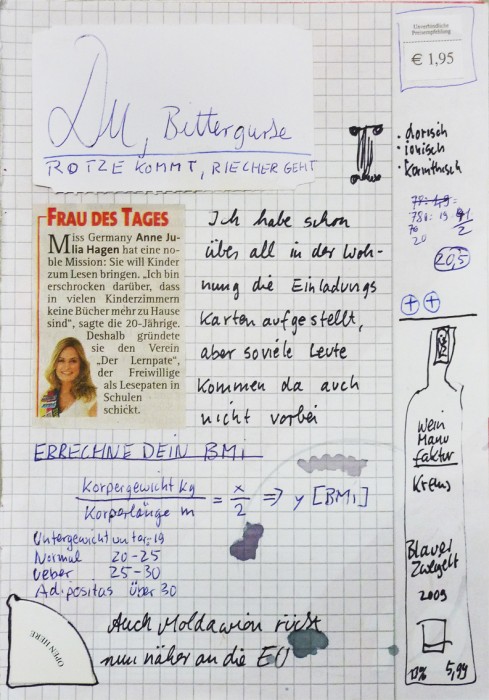 Unverbindliche
Preisempfehlung
€ 1,95
Du, Bittergurke
ROTZE KOMMT, RIECHER GEHT
· dorisch
· ionisch
· Korinthisch
780: 19
76
20
2
20,5
FRAU DES TAGES
Miss Germany Anne Ju-
lia Hagen hat eine no-
ble Mission: Sie will Kinder
zum Lesen bringen. „Ich bin
erschrocken darüber, dass
in vielen Kinderzimmern
keine Bücher mehr zu Hause
sind", sagte die 20-Jährige.
Deshalb gründete
sie den Verein
„Der Lernpate",
der Freiwillige
als Lesepaten in
Schulen
schickt.
Ich habe schon
über all in der Woh-
nung die Einladungs
Karten aufgestellt,
aber soviele Leute
kommen da auch
nicht vorbei
ERRECHNE DEIN BMI
Körpergewicht kg
Körperlänge m
= x/2 => y [BMI]
Untergewicht unter 19
Normal 20-25
Ueber 25-30
Adipositas über 30
OPEN HERE
Auch Moldawien rückt
nun näher an die EU
Wein
Manu
faktur
Krems
Blauer
Zweigelt
2009
13% 5,99